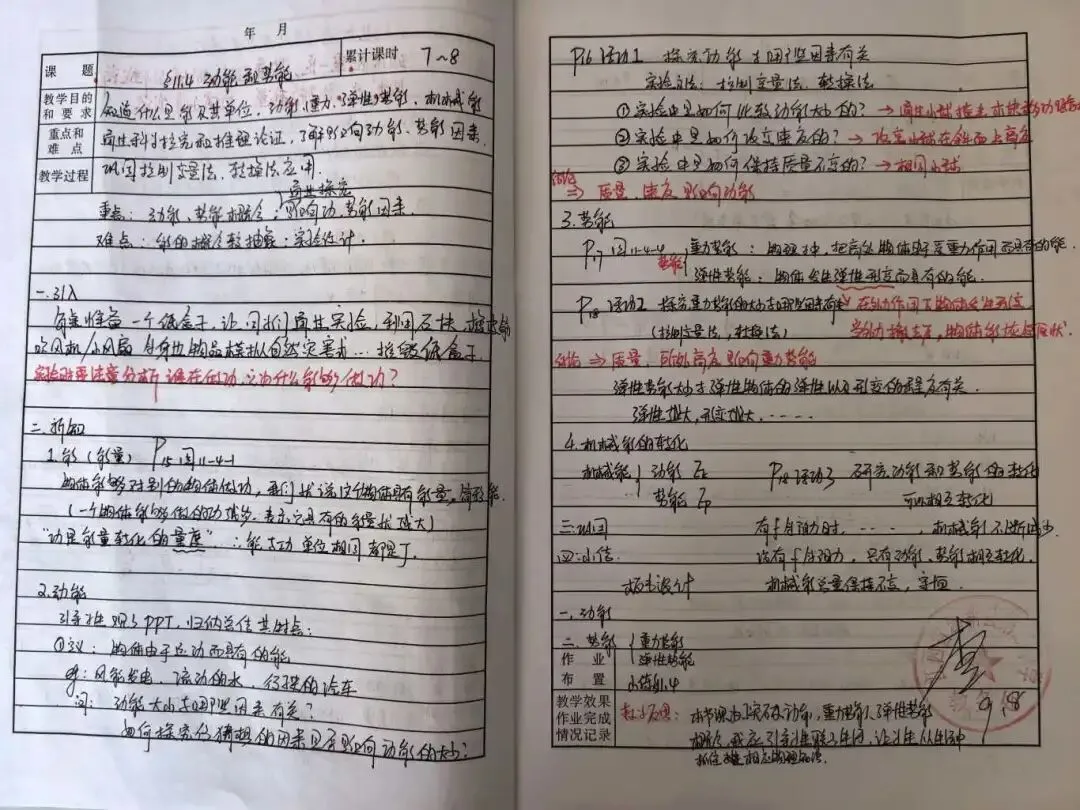 年 月
课 题 §11.4 动能和势能 累计课时 7~8
教学目的和要求 知道什么是能及其单位，动能、重力、弹性势能、机械能
重点和难点 科学探究和推理论证，了解影响动能、势能因素
教学过程 巩固控制变量法、转换法应用.
重点：动能、势能概念；影响动、势能因素.
难点：能的概念较抽象；实验设计.
一.引入
准备一个纸盒子，让同学们实验，利用石块、
吹风机/小风扇 身边物品模拟自然灾害 … 摧毁纸盒子.
实验时要注意分析 谁在做功，它为什么能够做功？
二.新知
1.能（能量） P15 图11-4-1
物体能够对别的物体做功，我们就说这个物体具有能量，简称能.
（一个物体能够做的功越多，表示它具有的能量就越大）
“功是能量转化的量度” ∴能与功单位相同 都是J.
2.动能
引导 观 PPT，归纳总结其特点：
①定义：物体由于运动而具有的能
eg：风能发电、流动的水、行驶的汽车
问：动能大小与哪些因素有关？
如何探究你猜想的因素是否影响动能的大小？
P16 活动1 探究动能与哪些因素有关
实验方法：控制变量法、转换法
①实验中是如何比较动能大小的？→
②实验中是如何改变速度的？→ 改变小球在斜面上高度
③实验中是如何保持质量不变的？→ 相同小球
结论 ⇒ 质量、速度影响动能
3.势能
P17 图11-4-4 势能 重力势能：物理中，把高处物体由于受重力作用而具有的能.
弹性势能：物体发生弹性形变而具有的能.
P18 活动2 探究重力势能的大小与哪些因素有关 在外力作用下物体发生形变
（控制变量法、转换法） 当外力撤去后，物体能恢复原状.
结论 ⇒ 质量、所处高度影响重力势能
弹性势能大小与弹性物体的弹性以及形变的程度有关.
弹性越大，形变越大，……
4.机械能的转化
机械能 动能 Ek P18 活动3 研究动能和势能的转化
势能 Ep 可以相互转化
三.巩固 有f与阻力时，……，机械能不断减少
四.小结 没有f与阻力，只有动能、势能相互转化，
板书设计 机械能总量保持不变，守恒.
一.动能
二.势能 重力势能
弹性势能
作业布置 练11.4
教学效果作业完成情况记录 本节课 动能，重力势能、弹性势能
概念，我应引导 联系生活，让 从生活中
9.8